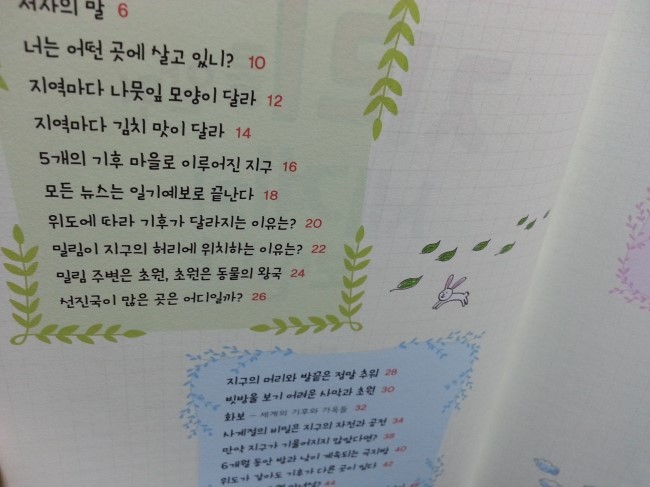 저자의 말 6
너는 어떤 곳에 살고 있니? 10
지역마다 나뭇잎 모양이 달라 12
지역마다 김치 맛이 달라 14
5개의 기후 마을로 이루어진 지구 16
모든 뉴스는 일기예보로 끝난다 18
위도에 따라 기후가 달라지는 이유는? 20
밀림이 지구의 허리에 위치하는 이유는? 22
밀림 주변은 초원, 초원은 동물의 왕국 24
선진국이 많은 곳은 어디일까? 26
지구의 머리와 발끝은 정말 추워 28
빗방울 보기 어려운 사막과 초원 30
화보 – 세계의 기후와 가옥들 32
사계절의 비밀은 지구의 자전과 공전 34
만약 지구가 기울어지지 않았다면? 38
6개월 동안 밤과 낮이 계속되는 극지방 40
위도가 같아도 기후가 다른 곳이 있다 42
44